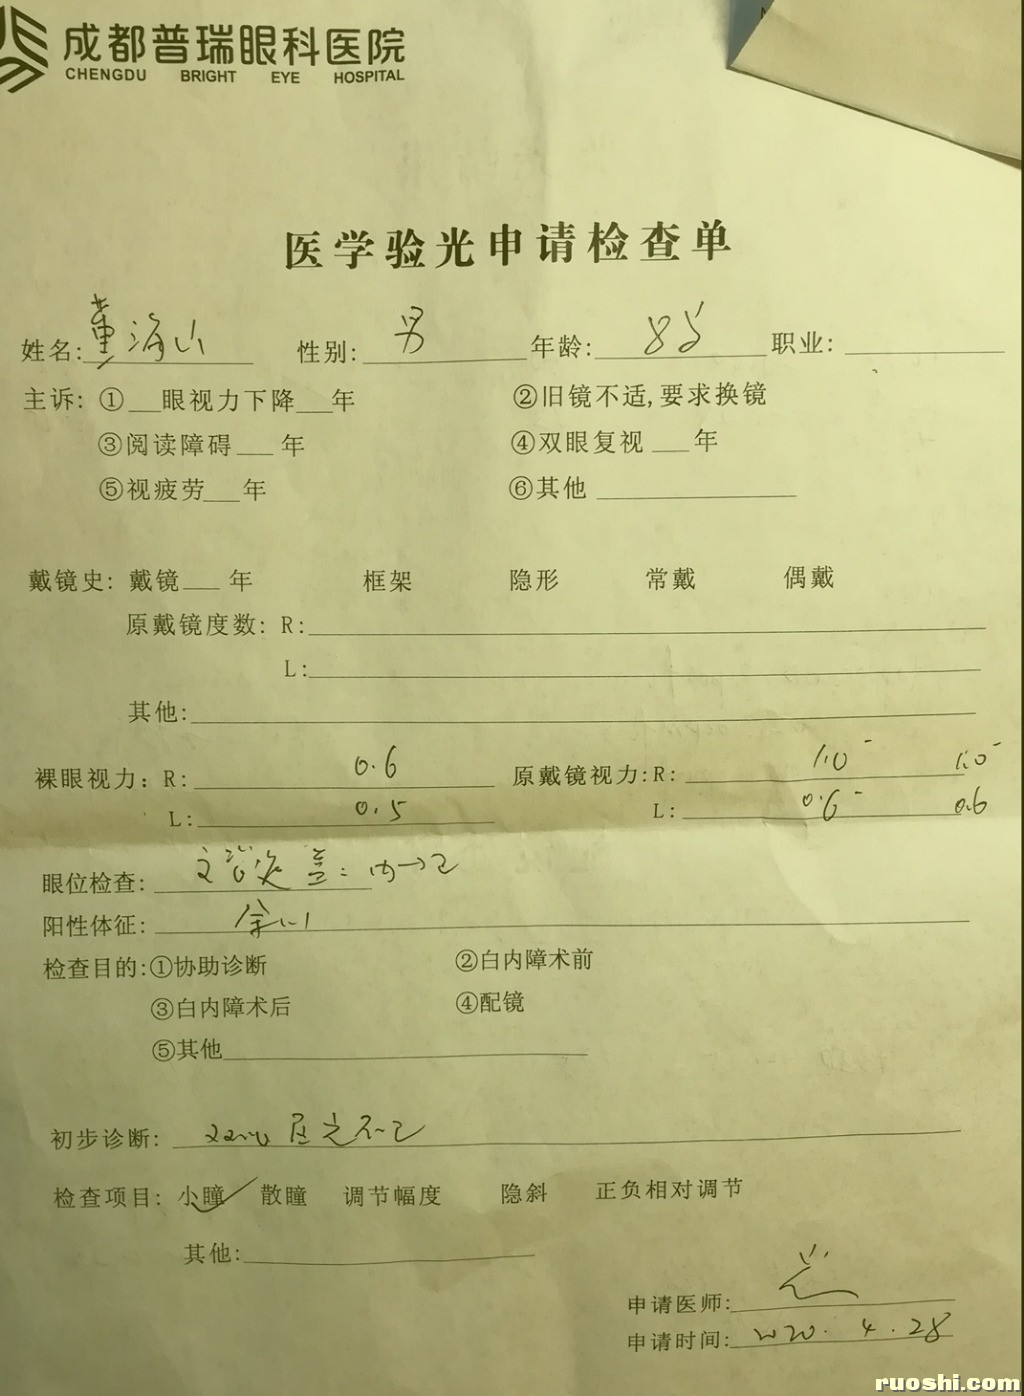 成都普瑞眼科医院
CHENGDU BRIGHT EYE HOSPITAL
医学验光申请检查单
姓名: 董海山 性别: 男 年龄: 8岁 职业:
主诉: ①___眼视力下降___年 ②旧镜不适,要求换镜
③阅读障碍___年 ④双眼复视___年
⑤视疲劳___年 ⑥其他
戴镜史: 戴镜___年 框架 隐形 常戴 偶戴
原戴镜度数: R:
L:
其他:
裸眼视力: R: 0.6 原戴镜视力: R: 1.0⁻ 1.0⁻
L: 0.5 L: 0.6⁻ 0.6
眼位检查: 交替遮盖: 内→正
阳性体征:
检查目的: ①协助诊断 ②白内障术前
③白内障术后 ④配镜
⑤其他
初步诊断: 双眼屈光不正
检查项目: 小瞳✓ 散瞳 调节幅度 隐斜 正负相对调节
其他:
申请医师:
申请时间: 2020.4.28
ruoshi.com